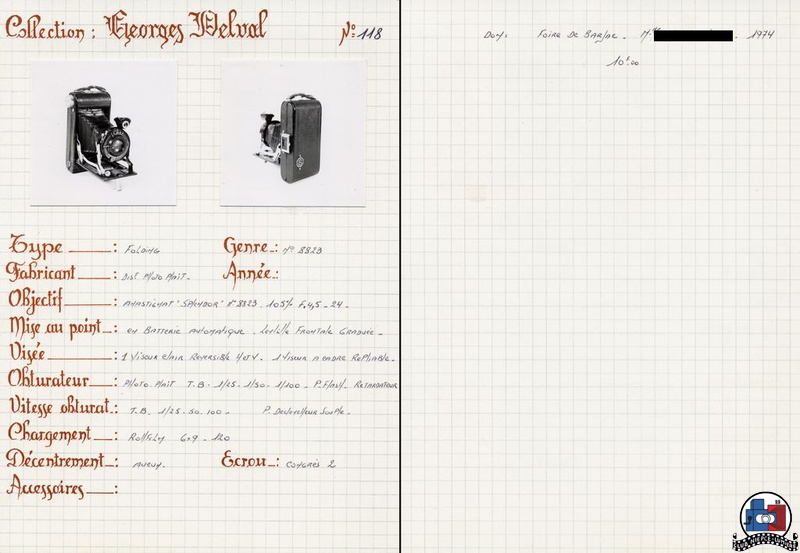 Collection : Georges Delval
N° 118
Type : Folding
Genre : N° 8823
Fabricant : Dist Photo Plait.
Année :
Objectif : Anastigmat "Splendor" N° 8823. 105% F. 4,5 - 24 -
Mise au point : en Batterie Automatique. Lentille Frontale Graduée -
Visée : 1 Viseur clair Reversible H et V. 1 Viseur a cadre Repliable -
Obturateur : Photo. Plait T.B. 1/25. 1/50. 1/100 - P. Flash. Retardateur
Vitesse obturat. : T.B. 1/25. 50. 100 - P. Declencheur Souple -
Chargement : Rollfilm 6x9 - 120
Décentrement : Aucun.
Ecrou : Congrès 2
Accessoires :
Don: Foire de Barjac. Mr - 1974
10F.00